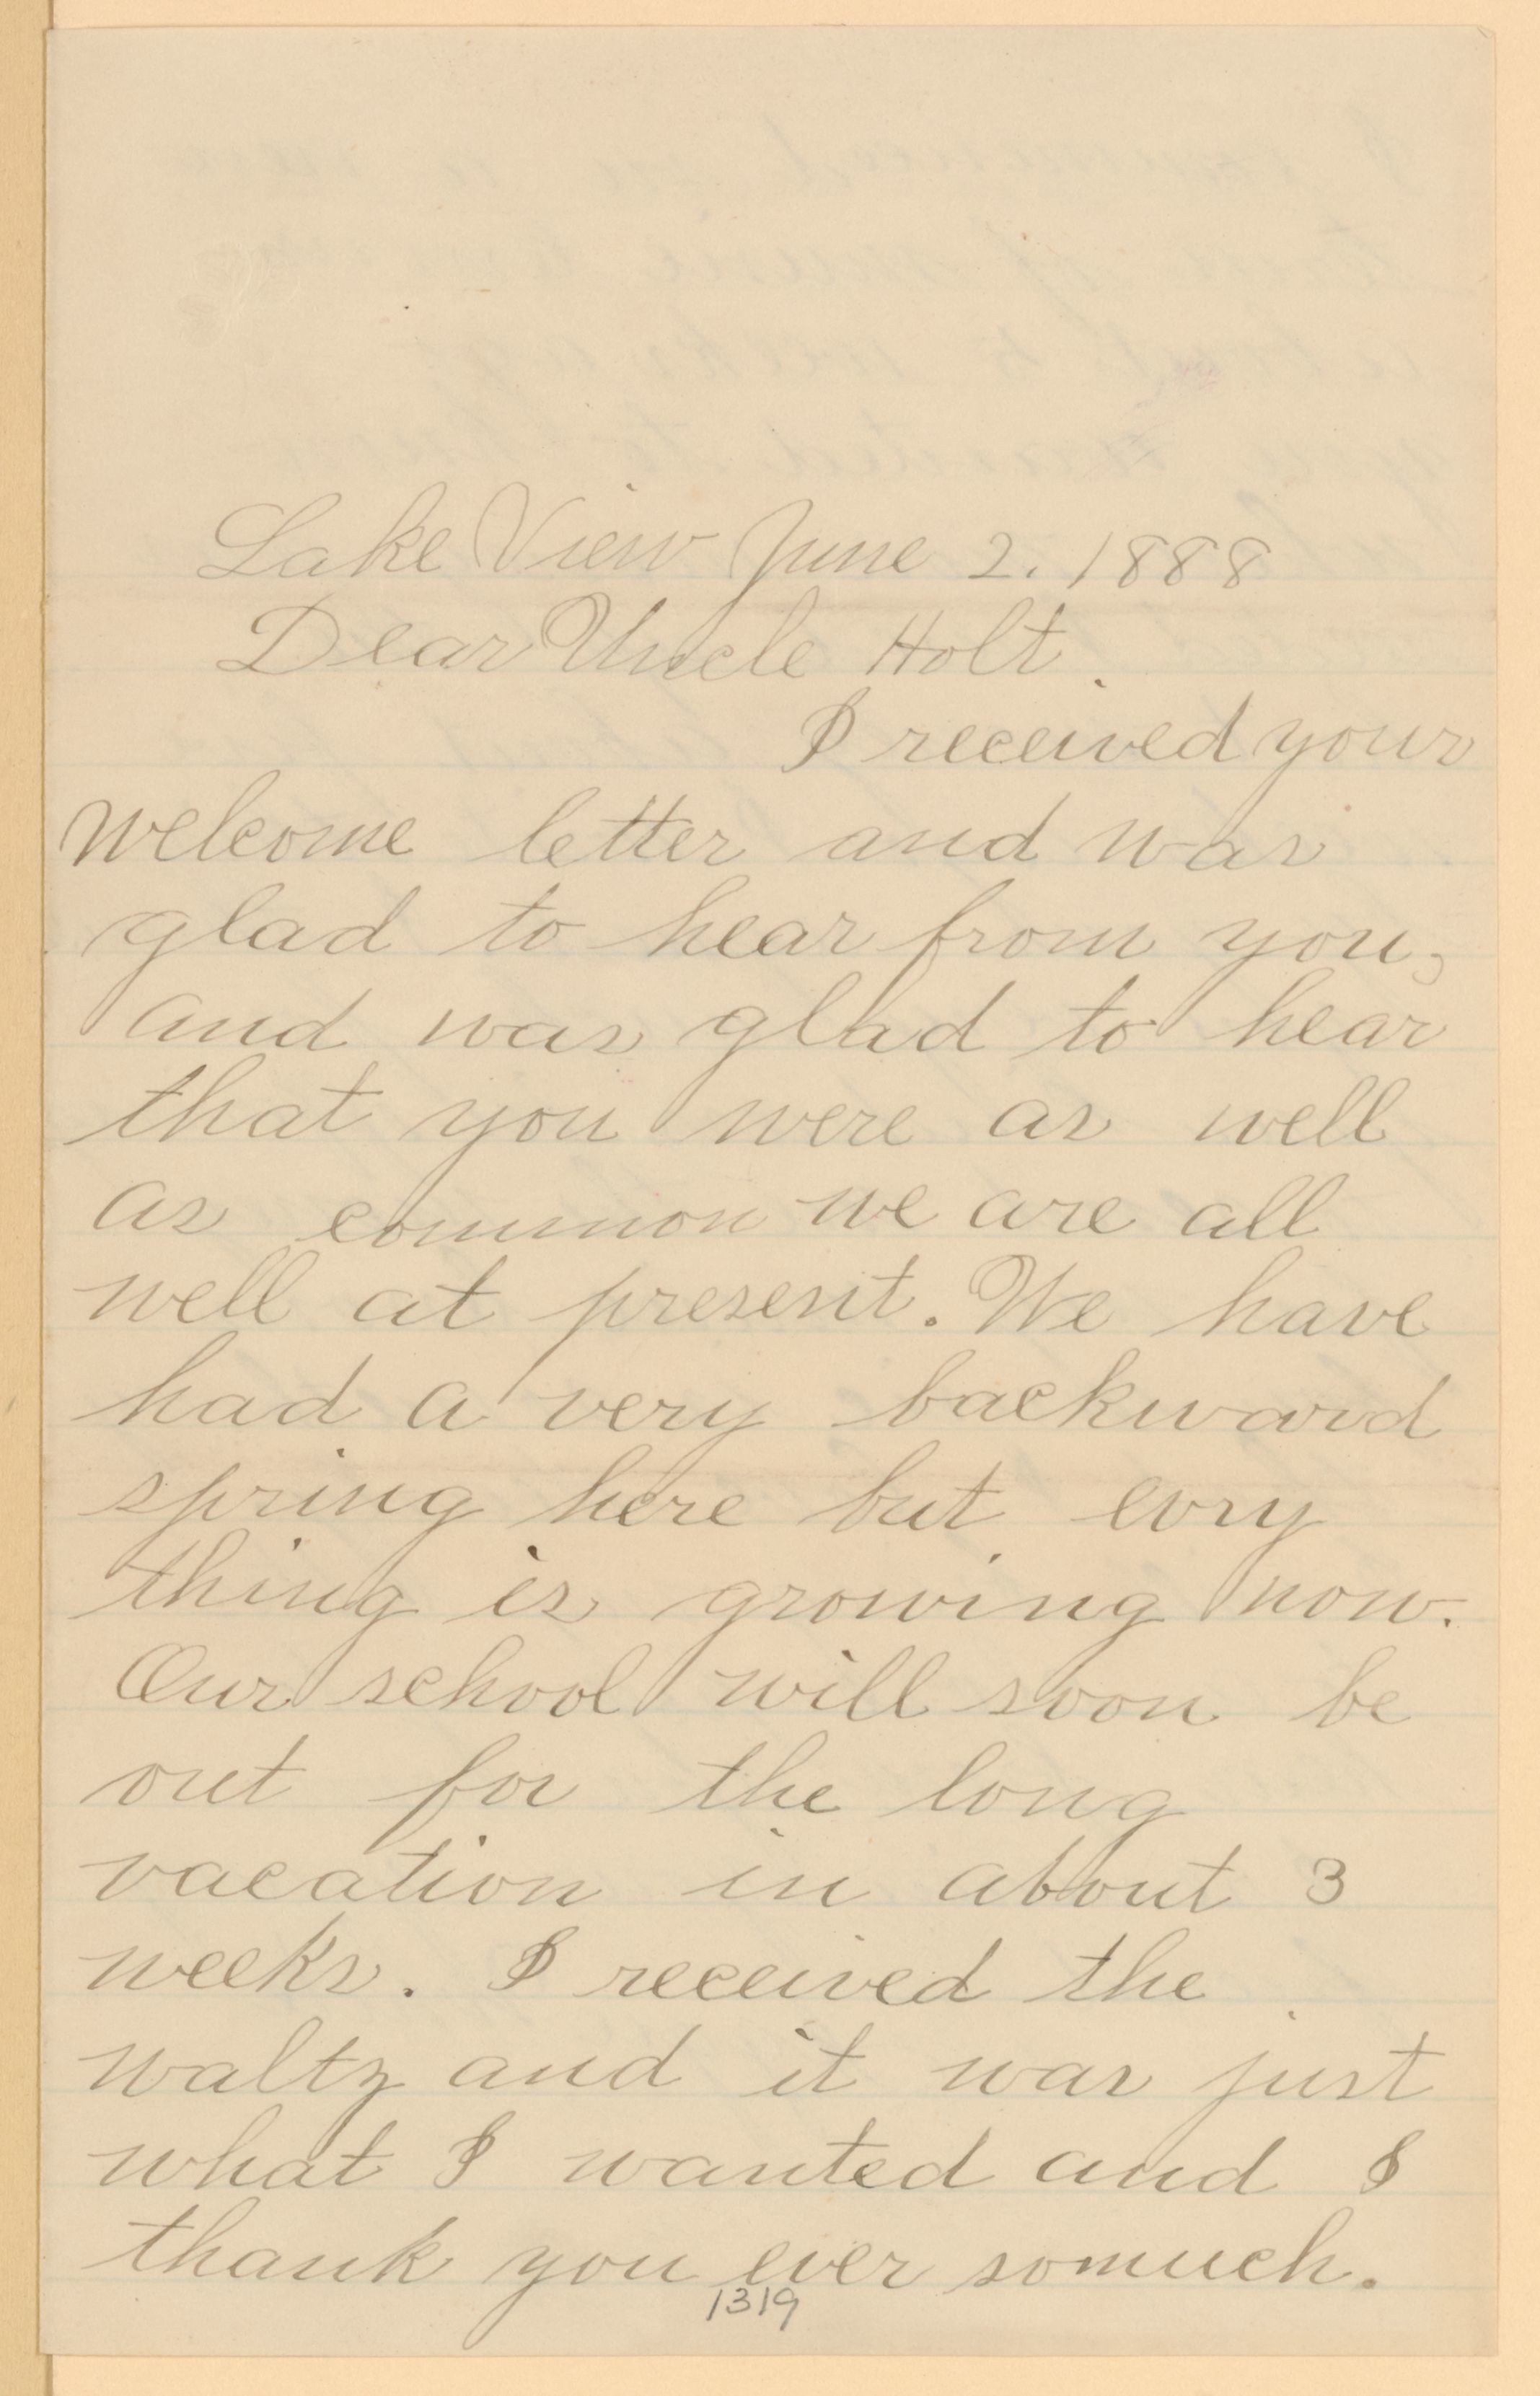 Lake View June 2. 1888
Dear Uncle Holt.
I received your
welcome letter and was
glad to hear from you,
and was glad to hear
that you were as well
as common we are all
well at present. We have
had a very backward
spring here but evry
thing is growing now.
Our school will soon be
out for the long
vacation in about 3
weeks. I received the
waltz and it was just
what I wanted and I
thank you ever somuch.
1319